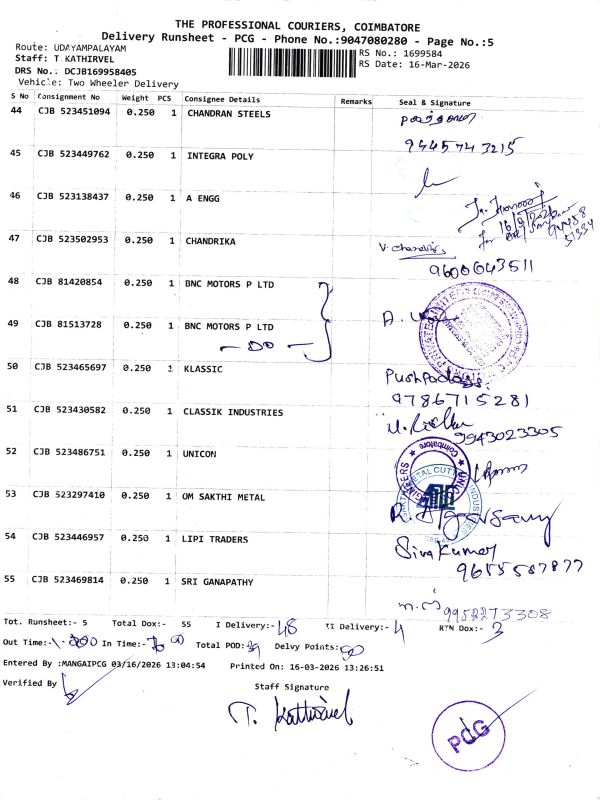 THE PROFESSIONAL COURIERS, COIMBATORE
Delivery Runsheet - PCG - Phone No.:9047080280 - Page No.:5
Route: UDAYAMPALAYAM
RS No.: 1699584
Staff: T KATHIRVEL
RS Date: 16-Mar-2026
DRS No.: DCJB169958405
Vehicle: Two Wheeler Delivery
S No Consignment No Weight PCS Consignee Details Remarks Seal & Signature
44 CJB 523451094 0.250 1 CHANDRAN STEELS
9445743215
45 CJB 523449762 0.250 1 INTEGRA POLY
46 CJB 523138437 0.250 1 A ENGG
47 CJB 523502953 0.250 1 CHANDRIKA
9600643511
48 CJB 81420854 0.250 1 BNC MOTORS P LTD
49 CJB 81513728 0.250 1 BNC MOTORS P LTD
— DO —
50 CJB 523465697 0.250 1 KLASSIC
9786715281
51 CJB 523430582 0.250 1 CLASSIK INDUSTRIES
9943023305
52 CJB 523486751 0.250 1 UNICON
Coimbatore
53 CJB 523297410 0.250 1 OM SAKTHI METAL
54 CJB 523446957 0.250 1 LIPI TRADERS
Siva Kumar
55 CJB 523469814 0.250 1 SRI GANAPATHY
9952273308
Tot. Runsheet:- 5 Total Dox:- 55 I Delivery:- 48 II Delivery:- 4 RTN Dox:- 3
Out Time:- In Time:- Total POD:- Delvy Points:-
Entered By :MANGAIPCG 03/16/2026 13:04:54 Printed On: 16-03-2026 13:26:51
Verified By
Staff Signature
T. Kathirvel
PCG